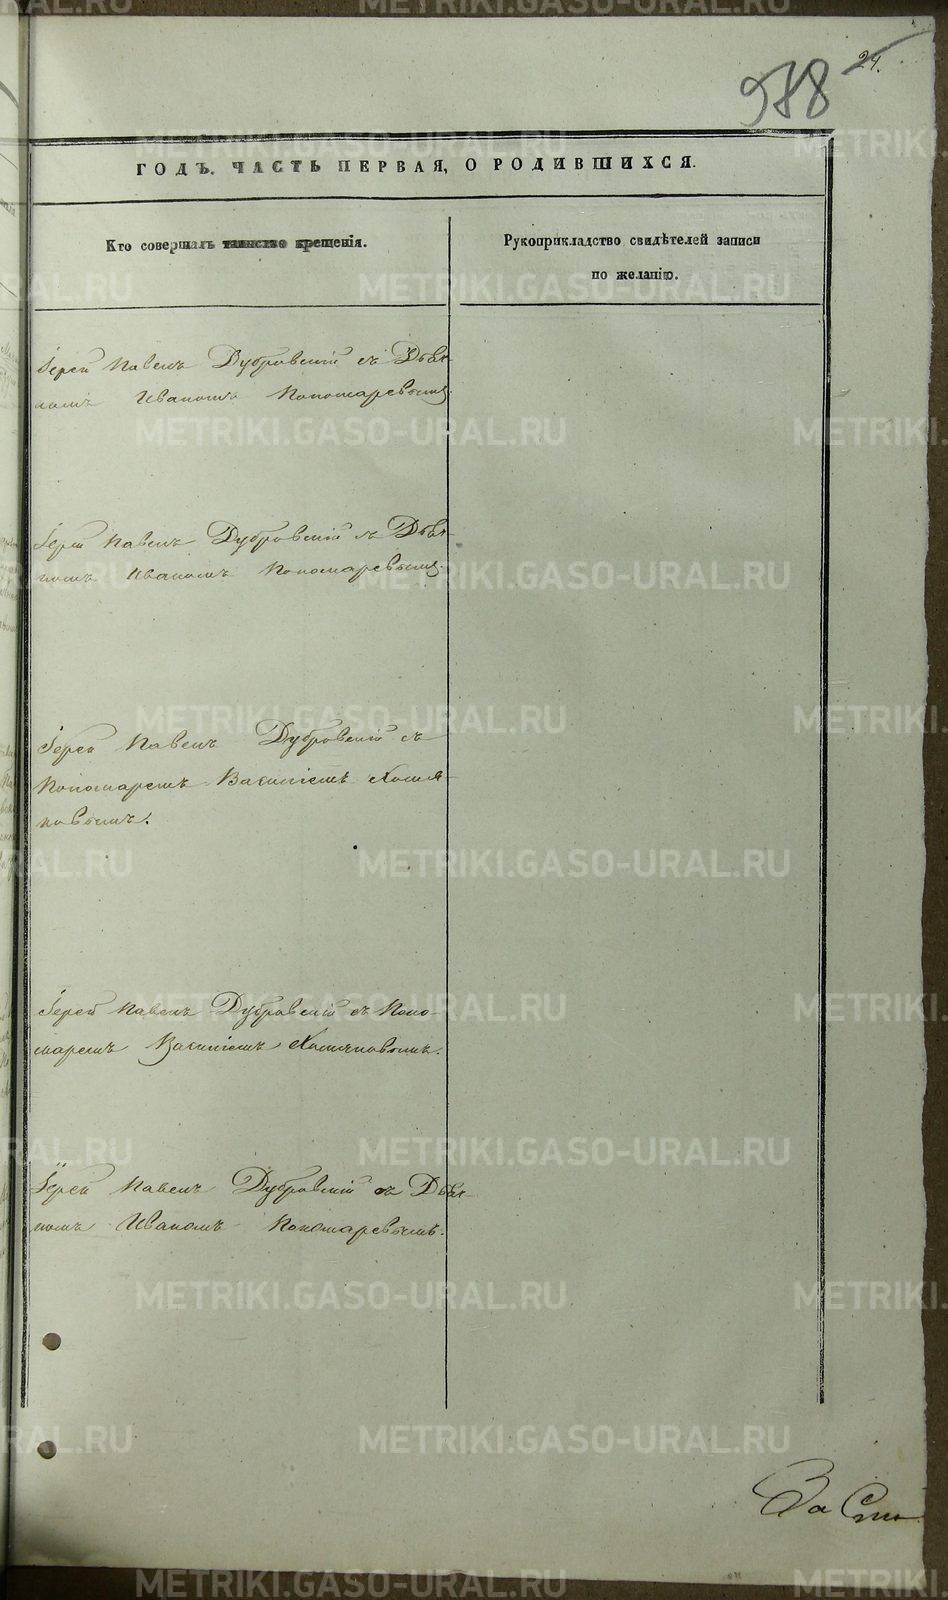 24.
988
ГОДЪ. ЧАСТЬ ПЕРВАЯ, О РОДИВШИХСЯ.
Кто совершалъ таинство крещенія.
Рукоприкладство свидѣтелей записи
по желанію.
Іерей Павелъ Дубровскій съ Дьяч-
комъ Иваномъ Пономаревымъ.
Іерей Павелъ Дубровскій съ Дьяч-
комъ Иваномъ Пономаревымъ.
Іерей Павелъ Дубровскій съ
Пономаремъ Василіемъ Хомя-
ковымъ.
Іерей Павелъ Дубровскій съ Поно-
маремъ Василіемъ Хомяковымъ.
Іерей Павелъ Дубровскій съ Дьяч-
комъ Иваномъ Пономаревымъ.
За
METRIKI.GASO-URAL.RU